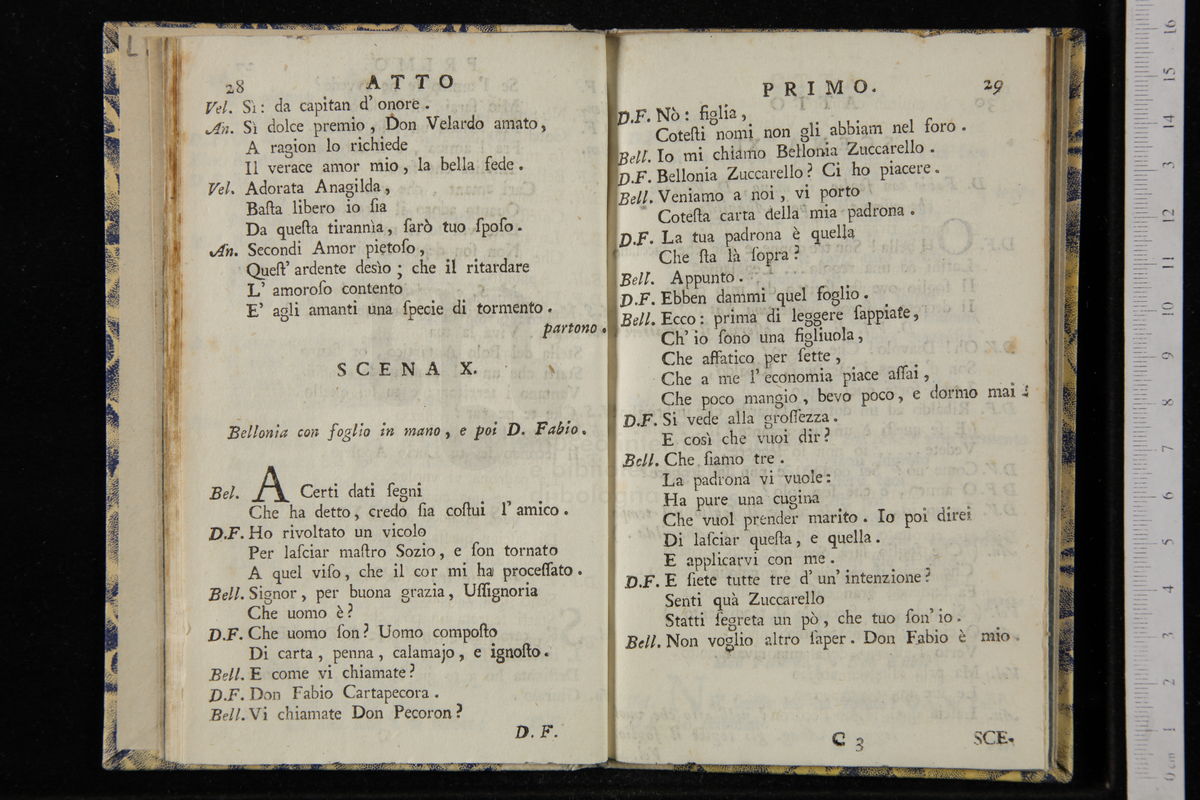 28 ATTO
Vel. Sì: da capitan d' onore.
An. Sì dolce premio, Don Velardo amato,
A ragion lo richiede
Il verace amor mio, la bella fede.
Vel. Adorata Anagilda,
Baſta libero io ſia
Da queſta tirannia, ſarò tuo ſpoſo.
An. Secondi Amor pietoſo,
Queſt' ardente desìo; che il ritardare
L' amoroſo contento
E' agli amanti una ſpecie di tormento.
partono.
SCENA X.
Bellonia con foglio in mano, e poi D. Fabio.
Bel. A Certi dati ſegni
Che ha detto, credo ſia coſtui l' amico.
D.F. Ho rivoltato un vicolo
Per laſciar maſtro Sozio, e ſon tornato
A quel viſo, che il cor mi ha proceſſato.
Bell. Signor, per buona grazia, Uſſignoria
Che uomo è?
D.F. Che uomo ſon? Uomo compoſto
Di carta, penna, calamajo, e ignoſto.
Bell. E come vi chiamate?
D.F. Don Fabio Cartapecora.
Bell. Vi chiamate Don Pecoron?
D. F.
PRIMO. 29
D.F. Nò: figlia,
Coteſti nomi non gli abbiam nel foro.
Bell. Io mi chiamo Bellonia Zuccarello.
D.F. Bellonia Zuccarello? Ci ho piacere.
Bell. Veniamo a noi, vi porto
Coteſta carta della mia padrona.
D.F. La tua padrona è quella
Che ſta là ſopra?
Bell. Appunto.
D.F. Ebben dammi quel foglio.
Bell. Ecco: prima di leggere ſappiate,
Ch' io ſono una figliuola,
Che affatico per ſette,
Che a me l' economia piace aſſai,
Che poco mangio, bevo poco, e dormo mai:
D.F. Si vede alla groſſezza.
E così che vuoi dir?
Bell. Che ſiamo tre.
La padrona vi vuole:
Ha pure una cugina
Che vuol prender marito. Io poi direi
Di laſciar queſta, e quella.
E applicarvi con me.
D.F. E ſiete tutte tre d' un' intenzione?
Senti quà Zuccarello
Statti ſegreta un pò, che tuo ſon' io.
Bell. Non voglio altro ſaper. Don Fabio è mio.
C 3 SCE-